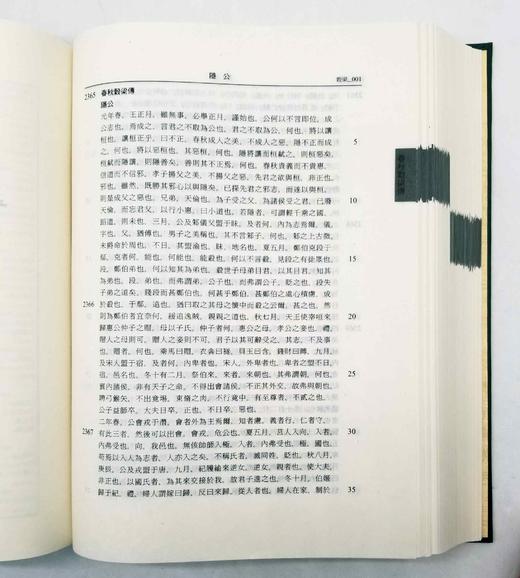 隱公
穀梁_001
2365 春秋穀梁傳
隱公
元年春，王正月，雖無事，必舉正月，謹始也，公何以不言即位，成
公志也，焉成之，言君之不取為公也，君之不取為公，何也，將以讓
桓也，讓桓正乎，曰不正，春秋成人之美，不成人之惡，隱不正而成 5
之，何也，將以惡桓也，其惡桓，何也，隱將讓而桓弒之，則桓惡矣，
桓弒而隱讓，則隱善矣，善則其不正焉，何也，春秋貴義而不貴惠，
信道而不信邪，孝子揚父之美，不揚父之惡，先君之欲與桓，非正也，
邪也，雖然，既勝其邪心以與隱矣，已探先君之邪志，而遂以與桓，
則是成父之惡也，兄弟，天倫也，為子受之父，為諸侯受之君，已廢 10
天倫，而忘君父，以行小惠，曰小道也，若隱者，可謂輕千乘之國，
蹈道，則未也，三月，公及邾儀父盟于眛，及者何，內為志焉爾，儀，
字也，父，猶傅也，男子之美稱也，其不言邾子，何也，邾之上古微，
未爵命於周也，不日，其盟渝也，眛，地名也，夏五月，鄭伯克段于
鄢，克者何，能也，何能也，能殺也，何以不言殺，見段之有徒眾也， 15
段，鄭伯弟也，何以知其為弟也，殺世子母弟目君，以其目君，知其
為弟也，段，弟也，而弗謂弟，公子也，而弗謂公子，貶之也，段失
子弟之道矣，賤段而甚鄭伯也，何甚乎鄭伯，甚鄭伯之處心積慮，成
2366 於殺也，于鄢，遠也，猶曰取之其母之懷中而殺之云爾，甚之也，然
則為鄭伯者宜奈何，緩追逸賊，親親之道也，秋七月，天王使宰咺來 20
歸惠公仲子之賵，母以子氏，仲子者何，惠公之母，孝公之妾也，禮，
賵人之母則可，賵人之妾則不可，君子以其可辭受之，其志，不及事
也，賵者，何也，乘馬曰賵，衣衾曰襚，貝玉曰含，錢財曰賻，九月，
及宋人盟于宿，及者何，內卑者也，宋人，外卑者也，卑者之盟不日，
宿，邑名也，冬十有二月，祭伯來，來者，來朝也，其弗謂朝，何也， 25
寰內諸侯，非有天子之命，不得出會諸侯，不正其外交，故弗與朝也，
聘弓鍭矢，不出竟埸，束脩之肉，不行竟中，有至尊者，不貳之也，
公子益師卒，大夫日卒，正也，不日卒，惡也，
二年春，公會戎于潛，會者外為主焉爾，知者慮，義者行，仁者守，
2367 有此三者，然後可以出會，會戎，危公也，夏五月，莒人入向，入者， 30
內弗受也，向，我邑也，無侅帥師入極，入者，內弗受也，極，國也，
苟焉以入人為志者，人亦入之矣，不稱氏者，滅同姓，貶也，秋八月，
庚辰，公及戎盟于唐，九月，紀履緰來逆女，逆女，親者也，使大夫，
非正也，以國氏者，為其來交接於我，故君子進之也，冬十月，伯姬
歸于紀，禮，婦人謂嫁曰歸，反曰來歸，從人者也，婦人在家，制於 35
春秋穀梁傳